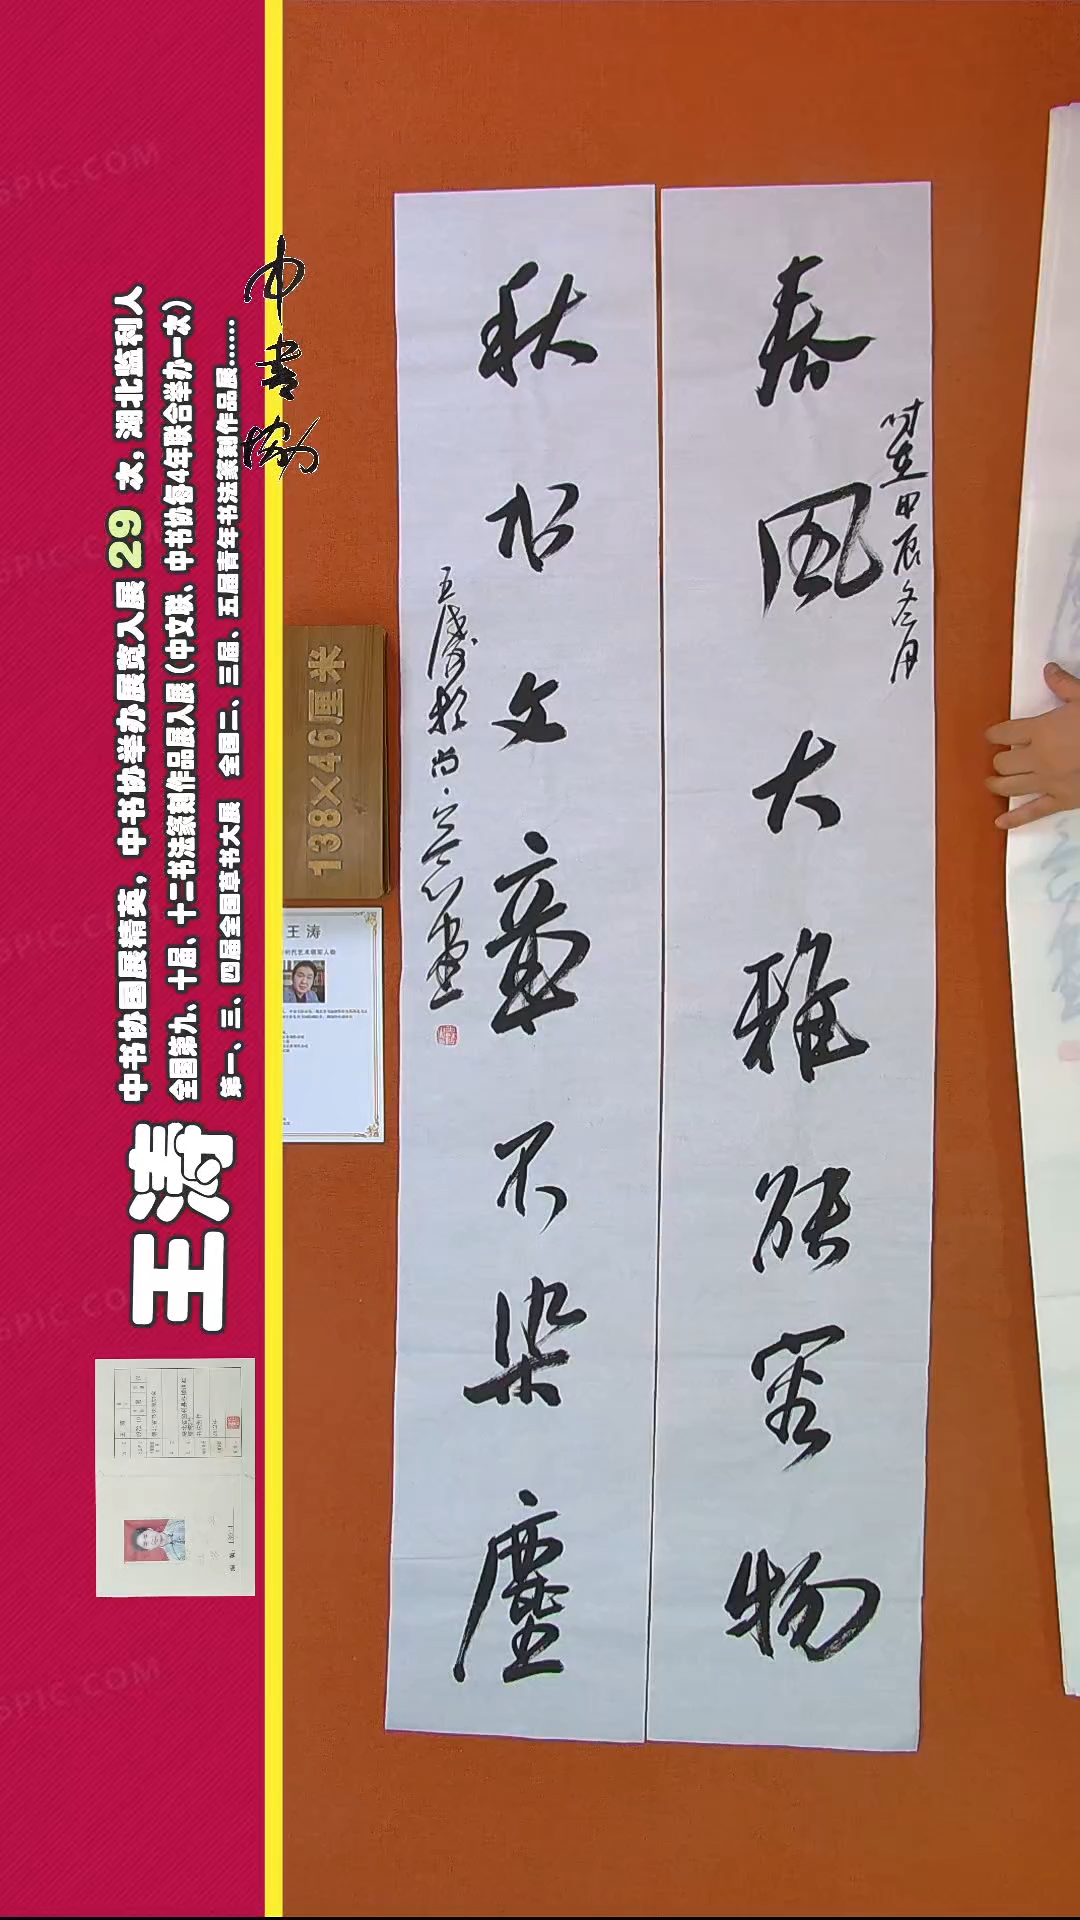 春风大雅能容物
时在甲辰冬月
秋水文章不染尘
王涛于尚
中书协
中书协国展精英，中书协举办展览入展 29 次，湖北监利人
全国第九、十届、十二书法篆刻作品展入展（中文联、中书协每4年联合举办一次）
第一、三、四届全国草书大展 全国二、三届、五届青年书法篆刻作品展……
王涛
138×46厘米
王涛
时代艺术领军人物